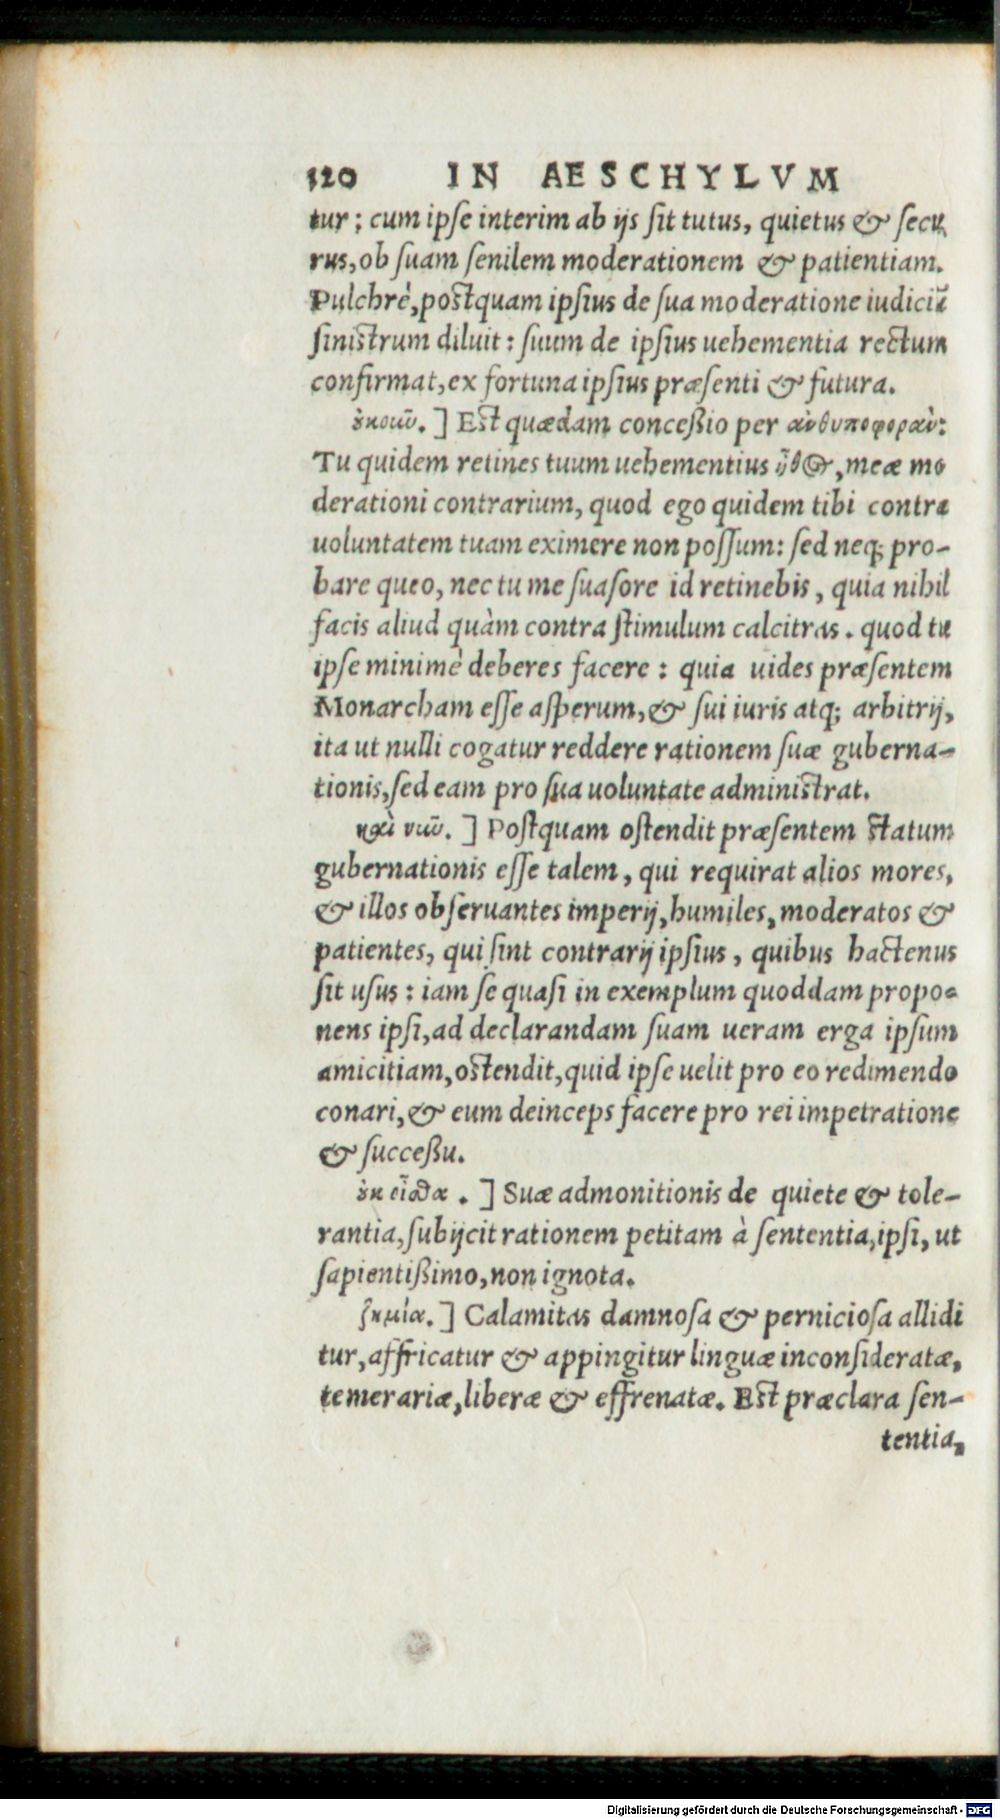 120 IN AESCHYLVM
tur; cum ipse interim ab ijs sit tutus, quietus & secu
rus, ob suam senilem moderationem & patientiam.
Pulchrè, postquam ipsius de sua moderatione iudiciũ
sinistrum diluit: suum de ipsius uehementia rectum
confirmat, ex fortuna ipsius præsenti & futura.
ȣκοιῶ. ] Est quædam concessio per ἀνθυποφοράν:
Tu quidem retines tuum uehementius ἦθος, meæ mo
derationi contrarium, quod ego quidem tibi contra
uoluntatem tuam eximere non possum: sed neq; pro-
bare queo, nec tu me suasore id retinebis, quia nihil
facis aliud quàm contra stimulum calcitras. quod tu
ipse minimè deberes facere: quia uides præsentem
Monarcham esse asperum, & sui iuris atq; arbitrij,
ita ut nulli cogatur reddere rationem suæ guberna-
tionis, sed eam pro sua uoluntate administrat.
καὶ νιῶ. ] Postquam ostendit præsentem statum
gubernationis esse talem, qui requirat alios mores,
& illos obseruantes imperij, humiles, moderatos &
patientes, qui sint contrarij ipsius, quibus hactenus
sit usus: iam se quasi in exemplum quoddam propo-
nens ipsi, ad declarandam suam ueram erga ipsum
amicitiam, ostendit, quid ipse uelit pro eo redimendo
conari, & eum deinceps facere pro rei impetratione
& successu.
ȣκ οἶσθα. ] Suæ admonitionis de quiete & tole-
rantia, subijcit rationem petitam à sententia, ipsi, ut
sapientissimo, non ignota.
ζημία. ] Calamitas damnosa & perniciosa allidi
tur, affricatur & appingitur linguæ inconsideratæ,
temerariæ, liberæ & effrenatæ. Est præclara sen-
tentia,
Digitalisierung gefördert durch die Deutsche Forschungsgemeinschaft - DFG